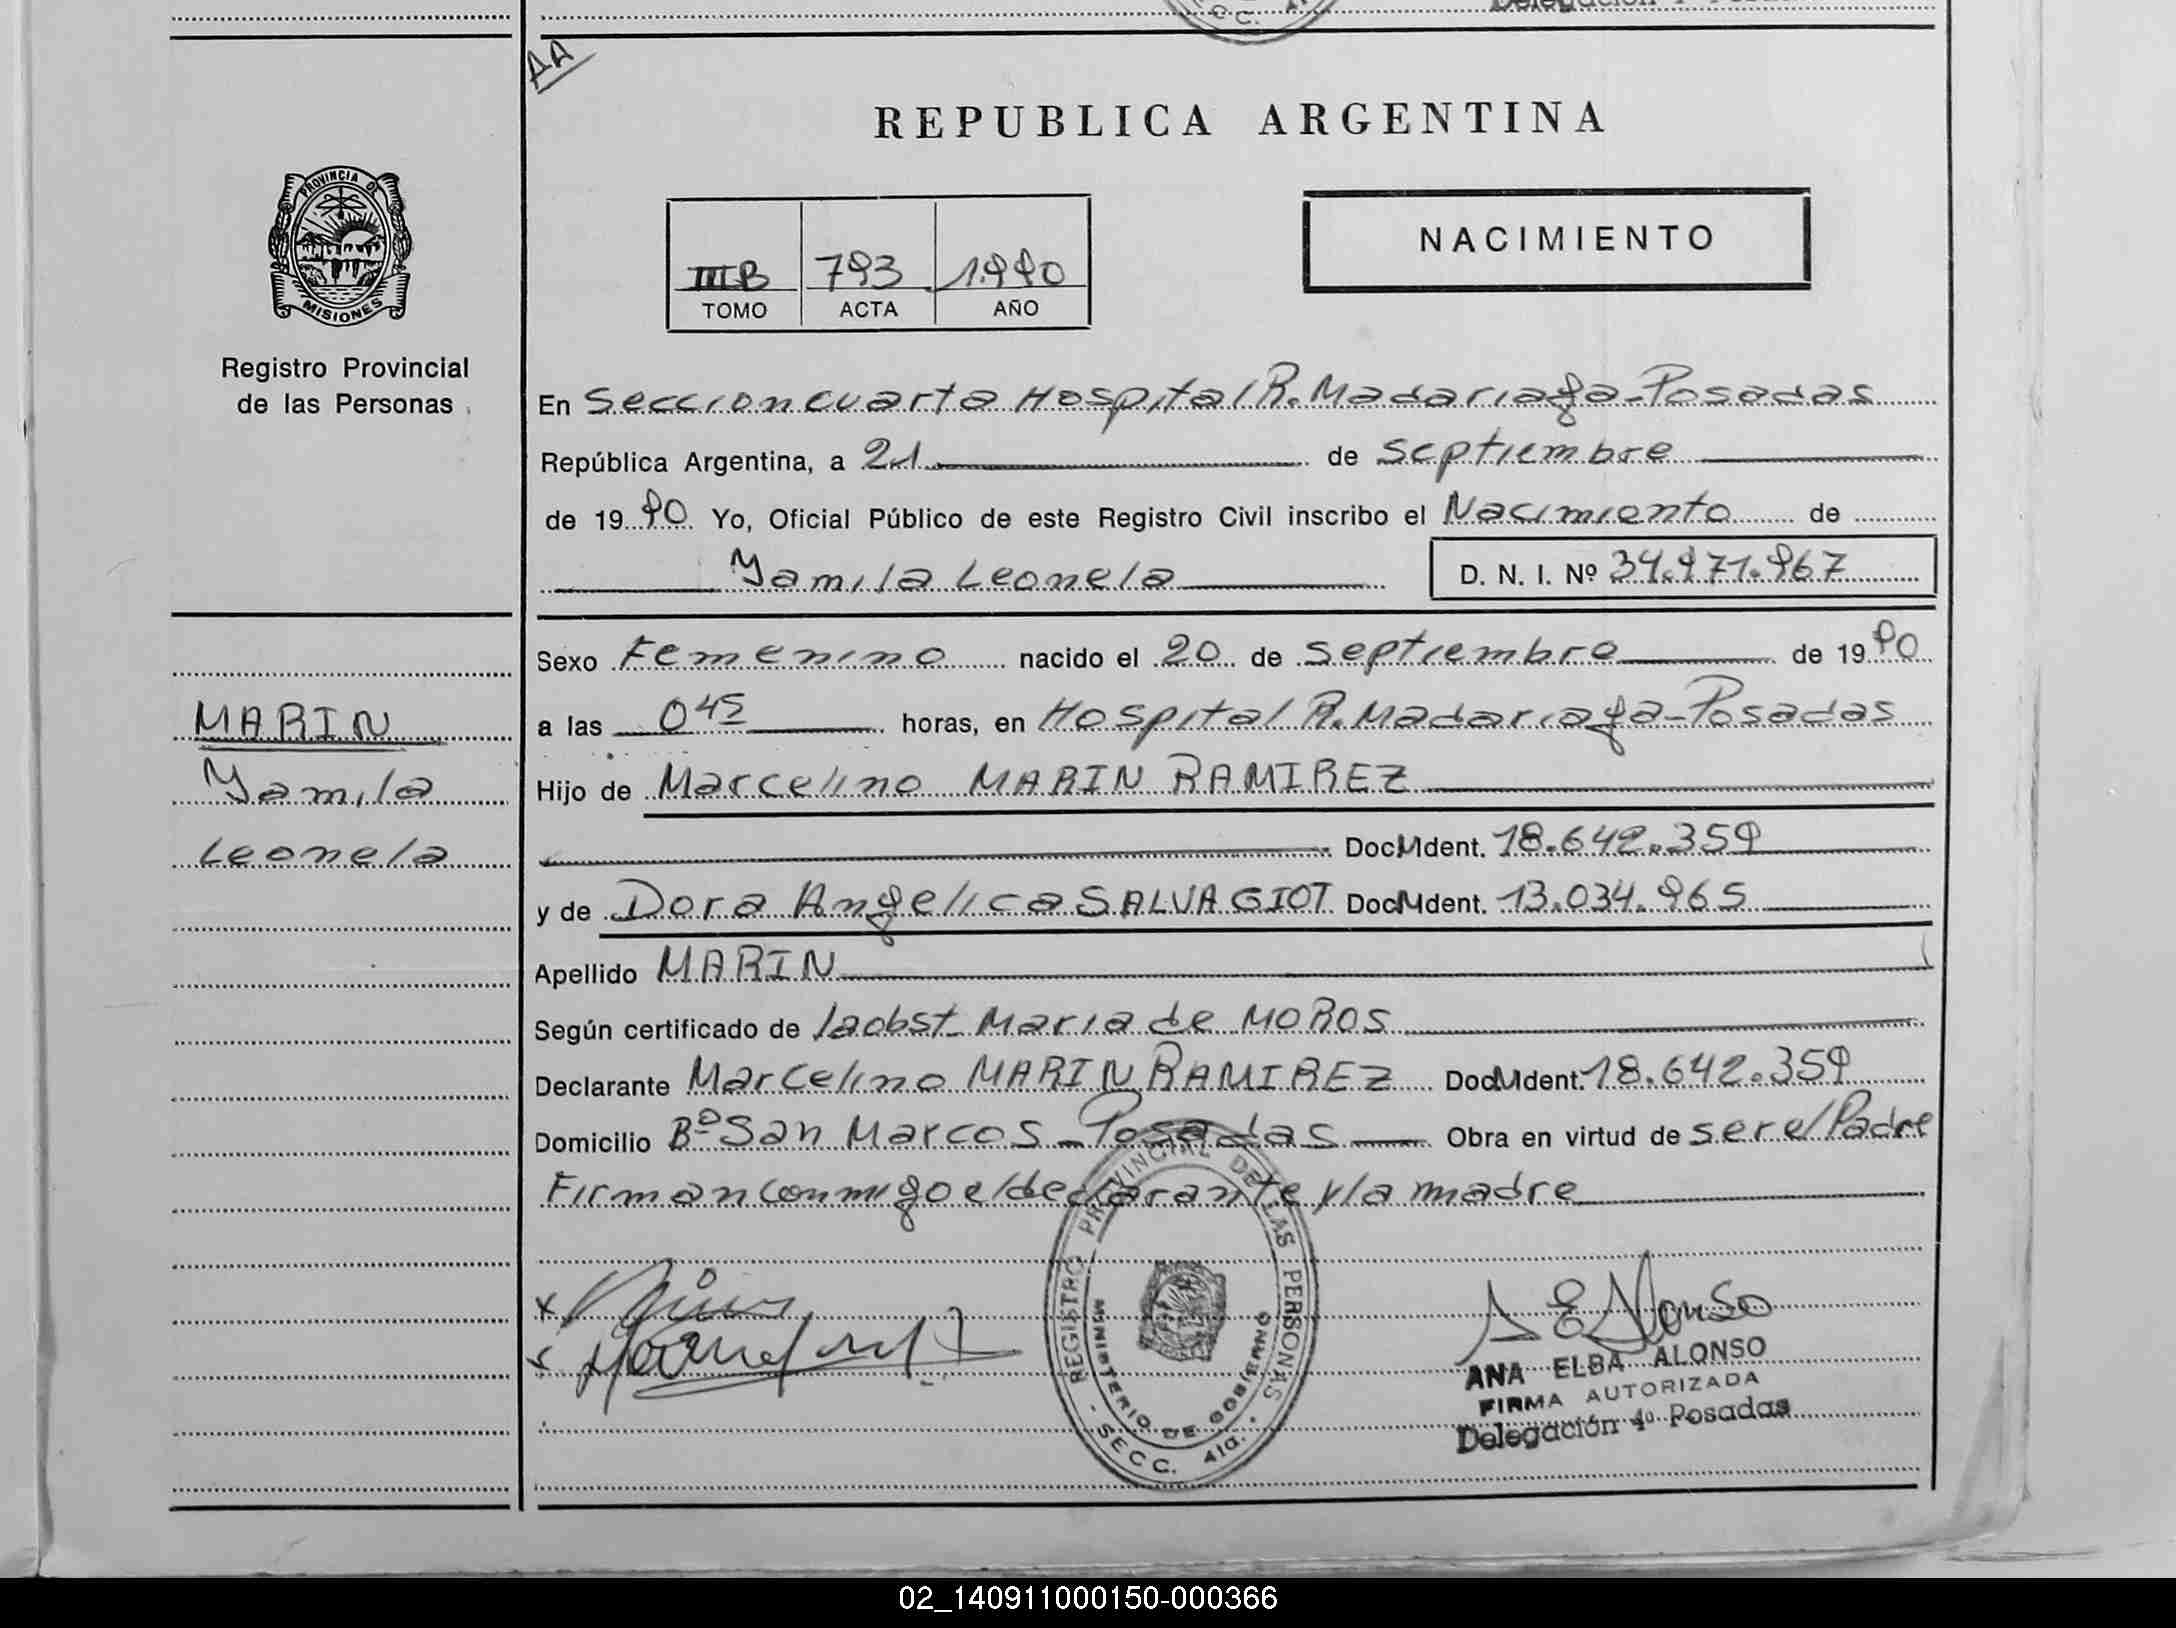 AA
REPUBLICA ARGENTINA
PROVINCIA DE
MISIONES
NACIMIENTO
IIIB 793 1.990
TOMO ACTA AÑO
Registro Provincial
de las Personas
En Seccion cuarta Hospital R. Madariaga-Posadas
República Argentina, a 21 de septiembre
de 19 90 Yo, Oficial Público de este Registro Civil inscribo el Nacimiento de
Yamila Leonela D. N. I. Nº 34.971.967
Sexo Femenino nacido el 20 de septiembre de 19 90
a las 0 45 horas, en Hospital R. Madariaga-Posadas
MARIN
Yamila
Leonela
Hijo de Marcelino MARIN RAMIREZ
Doc. Ident. 18.642.359
y de Dora Angelica SALVAGIOT Doc. Ident. 13.034.965
Apellido MARIN
Según certificado de la obst. Maria de MOROS
Declarante Marcelino MARIN RAMIREZ Doc. Ident. 18.642.359
Domicilio Bº San Marcos - Posadas Obra en virtud de ser el Padre
Firman conmigo el declarante y la madre
REGISTRO PROVINCIAL DE LAS PERSONAS
MINISTERIO DE GOBIERNO
- SECC. 4ta. -
A E Alonso
ANA ELBA ALONSO
FIRMA AUTORIZADA
Delegación 4º Posadas
02_140911000150-000366